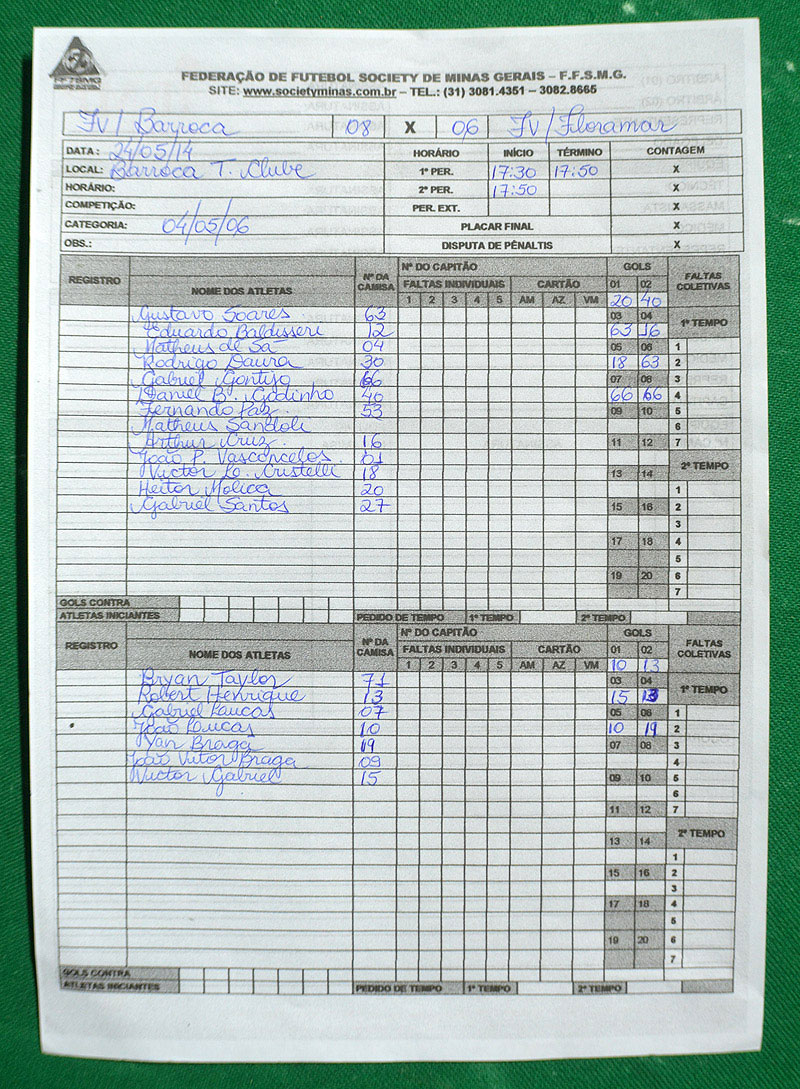 FEDERAÇÃO DE FUTEBOL SOCIETY DE MINAS GERAIS – F.F.S.M.G.
SITE: www.societyminas.com.br – TEL.: (31) 3081.4351 – 3082.8665
FV/ Barroca 08 X 06 FV/ Floramar
DATA: 24/05/14 HORÁRIO INÍCIO TÉRMINO CONTAGEM
LOCAL: Barroca T. Clube 1º PER. 17:30 17:50 X
HORÁRIO: 2º PER. 17:50 X
COMPETIÇÃO: PER. EXT. X
CATEGORIA: 04/05/06 PLACAR FINAL X
OBS.: DISPUTA DE PÊNALTIS X
REGISTRO NOME DOS ATLETAS Nº DA CAMISA Nº DO CAPITÃO GOLS FALTAS COLETIVAS
FALTAS INDIVIDUAIS CARTÃO 01 02
1 2 3 4 5 AM AZ VM 20 40
Gustavo Soares 63 03 04 1º TEMPO
Eduardo Baldisseri 12 63 16
Matheus de Sá 04 05 06 1
Rodrigo Daura 30 18 63 2
Gabriel Gontijo 66 07 08 3
Daniel B. Godinho 40 66 66 4
Fernando Paz 53 09 10 5
Matheus Sandoli 6
Arthur Cruz 16 11 12 7
João P. Vasconcelos 01 2º TEMPO
Victor Lo. Cristelli 18 13 14
Heitor Molica 20 1
Gabriel Santos 27 15 16 2
3
17 18 4
5
19 20 6
7
GOLS CONTRA
ATLETAS INICIANTES PEDIDO DE TEMPO 1º TEMPO 2º TEMPO
REGISTRO NOME DOS ATLETAS Nº DA CAMISA Nº DO CAPITÃO GOLS FALTAS COLETIVAS
FALTAS INDIVIDUAIS CARTÃO 01 02
1 2 3 4 5 AM AZ VM 10 13
Bryan Taylor 71 03 04 1º TEMPO
Robert Henrique 13 15 13
Gabriel Luucas 07 05 06 1
João Luucas 10 10 19 2
Yan Braga 19 07 08 3
João Vitor Braga 09 4
Victor Gabriel 15 09 10 5
6
11 12 7
2º TEMPO
13 14
1
15 16 2
3
17 18 4
5
19 20 6
7
GOLS CONTRA
ATLETAS INICIANTES PEDIDO DE TEMPO 1º TEMPO 2º TEMPO